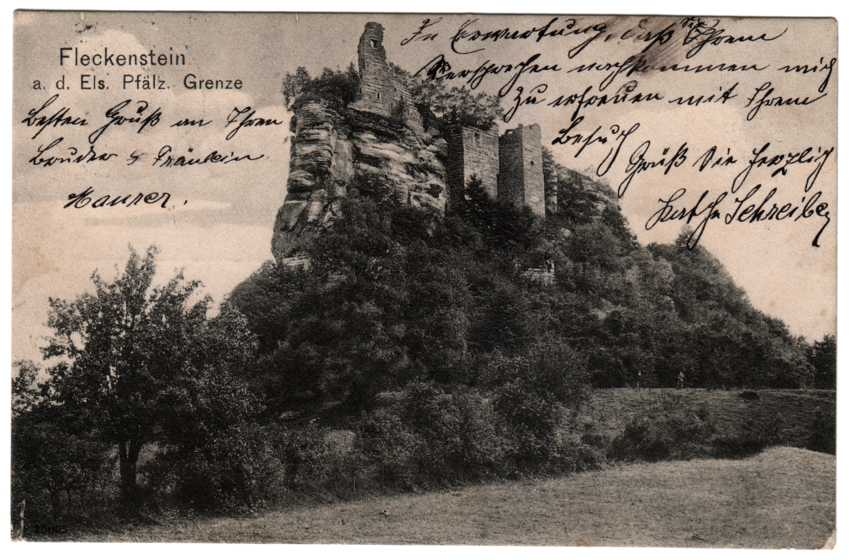 Fleckenstein
a. d. Els. Pfälz. Grenze
Besten Gruß an Ihren
Bruder & Fräulein
Maurer.
In Erwartung, daß Sie Ihrem
Versprechen nachkommen mich
zu erfreuen mit Ihrem
Besuch
Grüß Sie herzlich
Schreiber